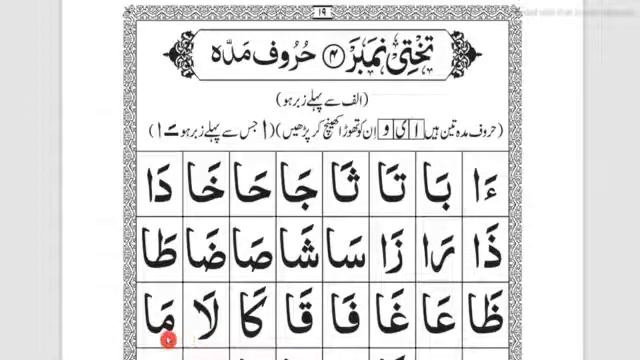 ١٩
تختی نمبر ۴ حُرُوف مَدَّہ
(الف سے پہلے زبر ہو)
(حروف مدہ تین ہیں ا ی و اِن کو تھوڑا کھینچ کر پڑھیں) (ا جس سے پہلے زبر ہو ـَـ ا)
ءَا بَا تَا ثَا جَا حَا خَا دَا
ذَا رَا زَا سَا شَا صَا ضَا طَا
ظَا عَا غَا فَا قَا كَا لَا مَا